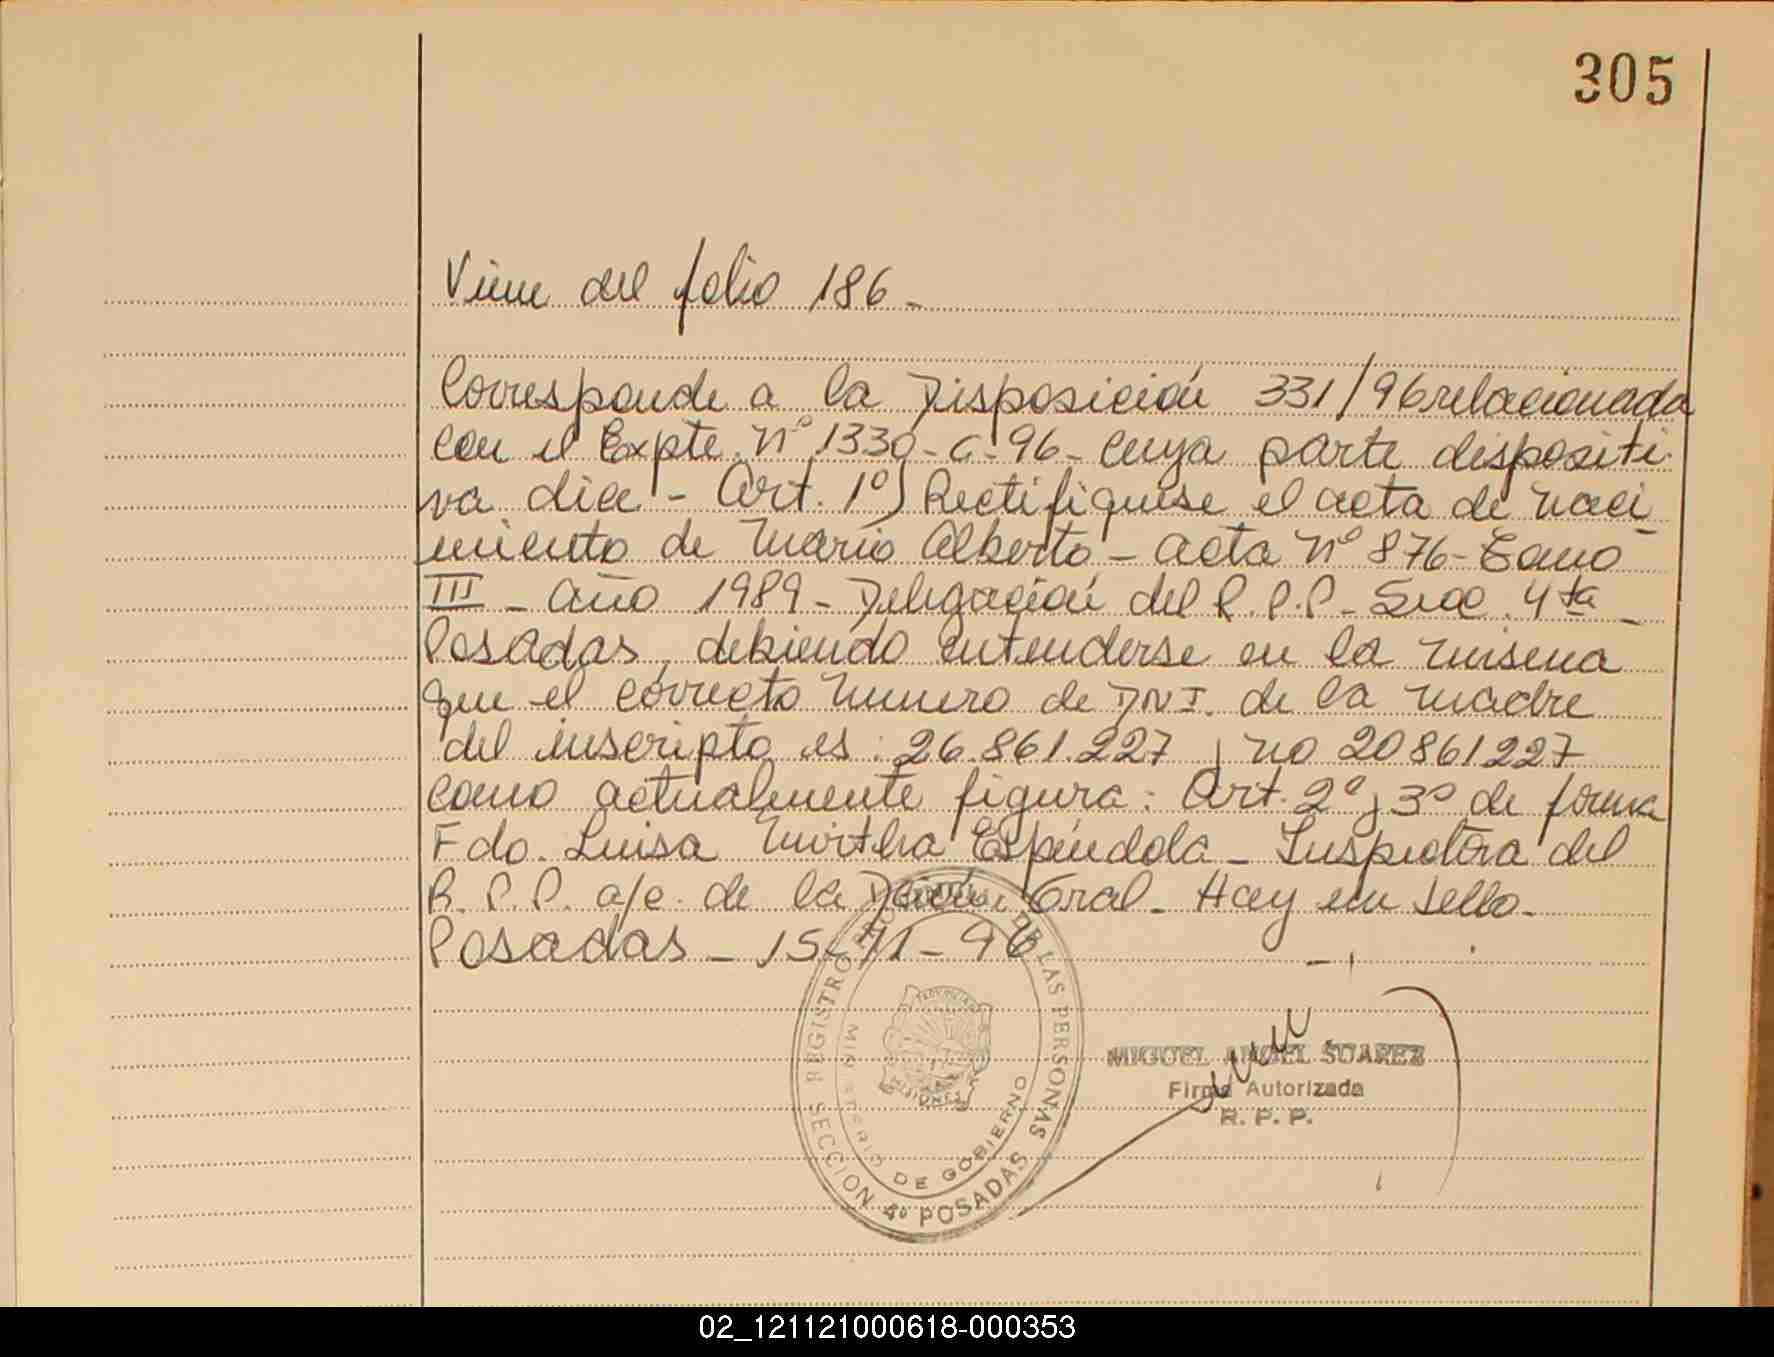 305
Viene del folio 186-
Corresponde a la Disposición 331/96 relacionada
con el Expte. Nº 1330-C-96- cuya parte dispositi-
va dice - Art. 1º) Rectifiquese el acta de naci
miento de Mario Alberto - acta Nº 876- Tomo
III - Año 1989 - Delegación del R.P.P- Secc. 4ta
Posadas, debiendo entenderse en la misma
que el correcto numero de DNI. de la madre
del inscripto es: 26.861.227 y no 20861227
como actualmente figura: Art. 2º y 3º de forma
Fdo. Luisa Mirtha Espíndola - Inspectora del
R.P.P. a/c. de la Dción. Gral - Hay un sello-
Posadas - 15-11-96
REGISTRO PROVINCIAL DE LAS PERSONAS
MINISTERIO DE GOBIERNO
PROVINCIA
MISIONES
SECCION 4º POSADAS
MIGUEL ANGEL SUAREZ
Firma Autorizada
R. P. P.
02_121121000618-000353